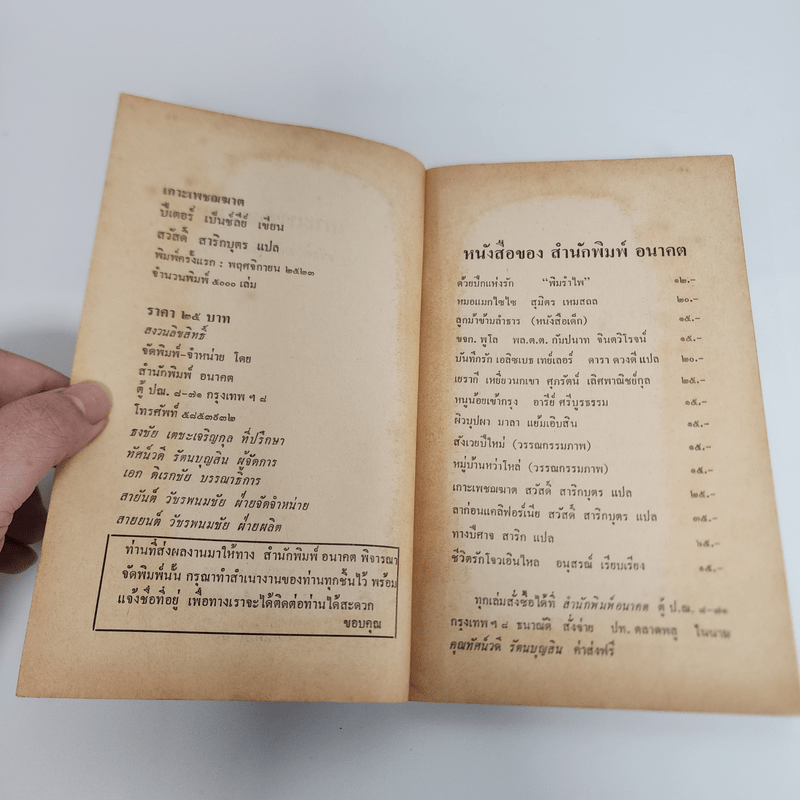 เกาะเพชฌฆาต
ปีเตอร์ เบ็นช์ลีย์ เขียน
สวัสดิ์ สาริกบุตร แปล
พิมพ์ครั้งแรก : พฤศจิกายน ๒๕๒๓
จำนวนพิมพ์ ๕๐๐๐ เล่ม
ราคา ๒๕ บาท
สงวนลิขสิทธิ์
จัดพิมพ์-จำหน่าย โดย
สำนักพิมพ์ อนาคต
ตู้ ปณ. ๘-๗๑ กรุงเทพ ฯ ๘
โทรศัพท์ ๕๘๕๓๙๓๒
ธงชัย เตชะเจริญกุล ที่ปรึกษา
ทัศน์วดี รัตนบุญสิน ผู้จัดการ
เอก ดิเรกชัย บรรณาธิการ
สายันต์ วัชรพนมชัย ฝ่ายจัดจำหน่าย
สายยนต์ วัชรพนมชัย ฝ่ายผลิต
ท่านที่ส่งผลงานมาให้ทาง สำนักพิมพ์ อนาคต พิจารณา
จัดพิมพ์นั้น กรุณาทำสำเนางานของท่านทุกชิ้นไว้ พร้อม
แจ้งชื่อที่อยู่ เพื่อทางเราจะได้ติดต่อท่านได้สะดวก
ขอบคุณ
หนังสือของ สำนักพิมพ์ อนาคต
ด้วยปีกแห่งรัก "พิมรำไพ" ๑๒.-
หมอแมกไซไซ สุมิตร เหมสถล ๒๐.-
ลูกม้าข้ามลำธาร (หนังสือเด็ก) ๑๕.-
ขจก. พูโล พล.ต.ต. กัมปนาท จินตวิโรจน์ ๑๕.-
บันทึกรัก เอลิซเบธ เทย์เลอร์ ดารา ดวงดี แปล ๒๐.-
เยรากี เหยี่ยวนกเขา ศุภรัตน์ เลิศพาณิชย์กุล ๒๕.-
หนูน้อยเข้ากรุง อารีย์ ศรีบูรธรรม ๑๕.-
ผิวบุปผา มาลา แย้มเอิบสิน ๑๕.-
สังเวยปีใหม่ (วรรณกรรมภาพ) ๑๕.-
หมู่บ้านหว่าไหล่ (วรรณกรรมภาพ) ๑๕.-
เกาะเพชฌฆาต สวัสดิ์ สาริกบุตร แปล ๒๕.-
ลาก่อนแคลิฟอร์เนีย สวัสดิ์ สาริกบุตร แปล ๓๕.-
ทางปีศาจ สาริก แปล ๖๕.-
ชีวิตรักโจวเอินไหล อนุสรณ์ เรียบเรียง ๑๕.-
ทุกเล่มสั่งซื้อได้ที่ สำนักพิมพ์อนาคต ตู้ ป.ณ. ๘-๗๑
กรุงเทพ ฯ ๘ ธนาณัติ สั่งจ่าย ปท. ตลาดพลู ในนาม
คุณทัศน์วดี รัตนบุญสิน ค่าส่งฟรี